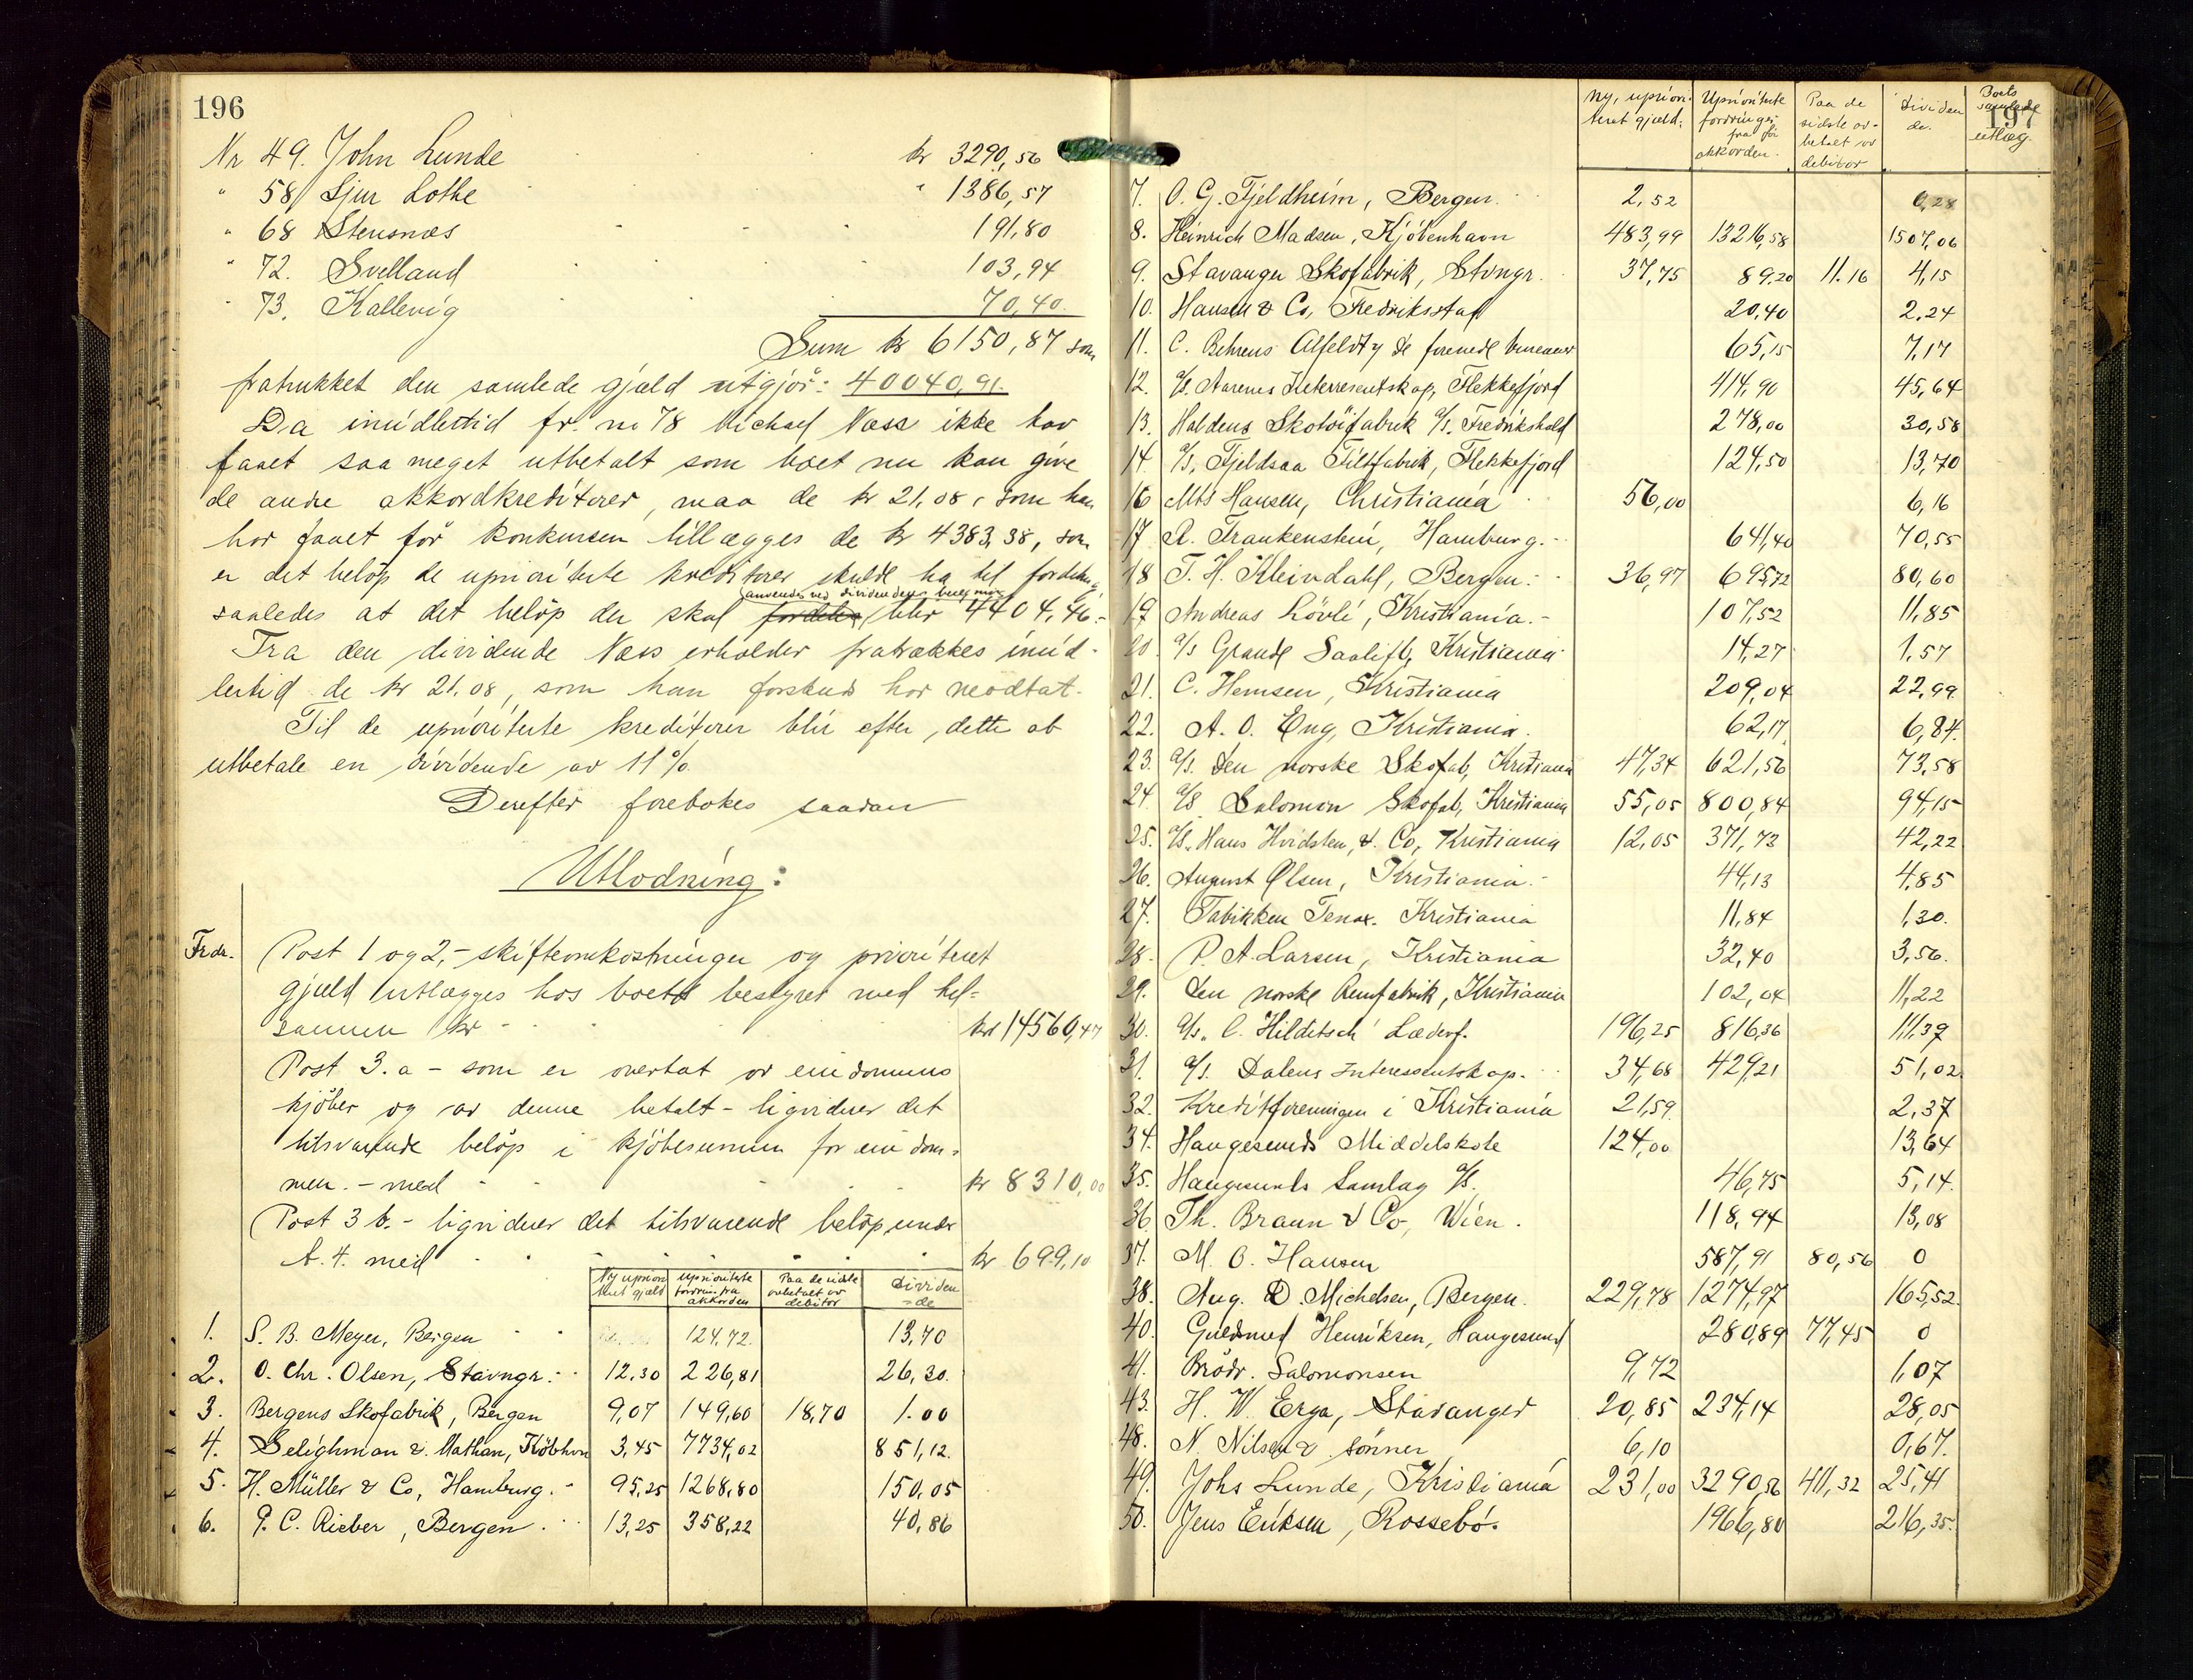 196
Nr 49. John Lunde kr 3290,56
" 58 Sjur Lothe " 1386,57
" 68 Stensnæs 191,80
" 72. Svelland 103,94
" 73. Kallevig 70,40.
Sum kr 6150,87 som
fratrukket den samlede gjæld utgjør: 40040,91.
Da imidlertid fr. nr 78 Michael Næss ikke har
faaet saa meget utbetalt som boet nu kan give
de andre akkordkreditorer, maa de kr 21,08, som han
har faaet før konkursen tillægges de kr 4383,38, som
er det beløp de uprioriterte kreditorer skulde ha til fordeling
anvendes ved dividendens beregning
saaledes at det beløp der skal fordeles blir 4404,46.-
Fra den dividende Næss erholder fratrækkes imid-
lertid de kr 21.08, som han forskuds har modtat.
Til de uprioriterte kreditorer blir efter dette at
utbetale en dividende av 11%.
Derefter forebokes saadan
Utlodning:
Frdr.
Post 1 og 2,- skifteomkostninger og prioritert
gjæld utlægges hos boets bestyrer med til-
sammen kr kr 14560,47
Post 3.a - som er overtat av eiendommens
kjøber og av denne betalt - ligviderer det
tilsvarende beløp i kjøbesummen for eiendom-
men. - med kr 8310,00
Post 3 b.- ligviderer det tilsvarende beløp under
A. 4. med kr 699,10
Ny uprioritert gjæld | Uprioriterte fordring fra akkorden | Paa de sidste avbetalt av debitor | Dividende
1. S. B. Meyer, Bergen 124,72. 13,70
2. O. Chr. Olsen, Stavngr. 12.30 226,81 26,30.
3. Bergens Skofabrik, Bergen 9,07 149,60 18,70 1.00
4. Selighman & Nathan, Köbhvn 3,45 7734,02 851,12.
5. H. Müller & Co, Hamburg. 95,25 1268,80 150,05
6. P. C. Rieber, Bergen 13,25 358,22 40,86
197
Ny, uprioritert gjæld. | Uprioriterte fordringer fra før akkorden. | Paa de sidste avbetalt av debitor | Dividende. | Boets samlede utlæg.
7. O. G. Fjeldheim, Bergen. 2,52 0,28
8. Heinrich Madsen, Kjøbenhavn 483,99 13216,58 1507,06
9. Stavanger Skofabrik, Stvngr. 37,75 89,20 11.16 4,15
10. Hansen & Co, Fredriksstad 20,40 2,24
11. C. Behrens Alfeldt de forenede bureauer 65,15 7,17
12. A/S. Aarenes Interessentskap, Flekkefjord 414,90 45,64
13. Haldens Skotøifabrik A/S. Fredrikshald 278,00 30,58
14. A/S. Fjeldsaa Filtfabrik, Flekkefjord 124,50 13,70
16 Mts Hansen, Christiania 56,00 6,16
17 R. Frankenstein, Hamburg. 641,40 70,55
18 T. H. Kleindahl, Bergen. 36,97 695,72 80,60
19. Andreas Lövli, Kristiania.- 107,52 11,85
20. A/S Grande Saalift, Kristiania 14,27 1,57
21. C. Hemsen, Kristiania 209,04 22,99.
22. A. O. Eng, Kristiania. 62,17 6,84.
23. A/S. Den norske Skofab, Kristiania 47,34 621,56 73,58
24. A/S Salomon Skofab, Kristiania 55,05 800,84 94,15
25. A/S. Hans Hvidsten, & Co, Kristiania 12,05 371,73 42,22
26. August Olsen, Kristiania.- 44,13 4,85
27. Fabikken Tenax. Kristiania 11,84 1,30.
28. P. A. Larsen, Kristiania 32,40 3,56.
29. Den norske Remfabrik, Kristiania 102,04 11,22
30. A/S. C. Hilditsch Læderf. 196,25 816,36 111,39
31. A/S. Dalens Interessentskap. 34,68 429,21 51,02.
32. Kreditforeningen i Kristiania 21,59. 2,37
34. Haugesunds Middelskole 124,00 13,64
35. Haugesunds Samlag A/S. 46,75 5,14.
36 Th. Braun & Co, Wien. 118,94 13,08
37. M. O. Hansen 587,91 80,56 0
38. Aug. D. Michelsen, Bergen. 229,78 1274,97 165,52.
40. Guldsmed Henriksen, Haugesund 280,89 77,45 0
41. Brödr. Salomonsen 9,72 1,07
43. H. W. Erga, Stavanger 20,85 234,14 28,05
48. N. Nilsen & sönner 6,10 0,67.
49. Johs Lunde, Kristiania 231,00 3290,56 411,32 25,41
50. Jens Eriksen, Rossebö. 1966,80 216,35.